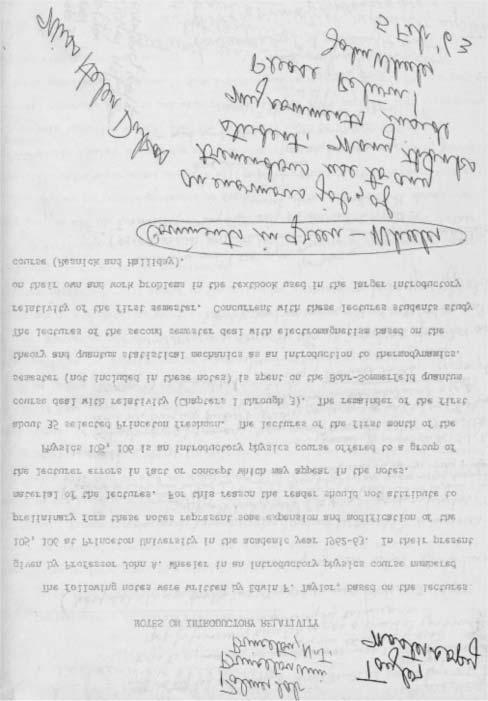 Palmer Lab
Princeton Univ
Princeton, N.J.
Taylor
master copy
NOTES ON INTRODUCTORY RELATIVITY
The following notes were written by Edwin F. Taylor, based on the lectures
given by Professor John A. Wheeler in an introductory physics course numbered
105, 106 at Princeton University in the academic year 1962-63. In their present
preliminary form these notes represent some expansion and modification of the
material of the lectures. For this reason the reader should not attribute to
the lecturer errors in fact or concept which may appear in the notes.
Physics 105, 106 is an introductory physics course offered to a group of
about 35 selected Princeton freshmen. The lectures of the first month of the
course deal with relativity (Chapters 1 through 3). The remainder of the first
semester (not included in these notes) is spent on the Bohr-Sommerfeld quantum
theory and quantum statistical mechanics as an introduction to thermodynamics.
The lectures of the second semester deal with electromagnetism based on the
relativity of the first semester. Concurrent with these lectures students study
on their own and work problems in the textbook used in the larger introductory
course (Resnick and Halliday).
Comments in green — Wheeler
an enormous job, of
tremendous use to any
student. Many thanks
my comments inside
Please Return!
John Wheeler
5 Feb '63
Miss Helen Dukas